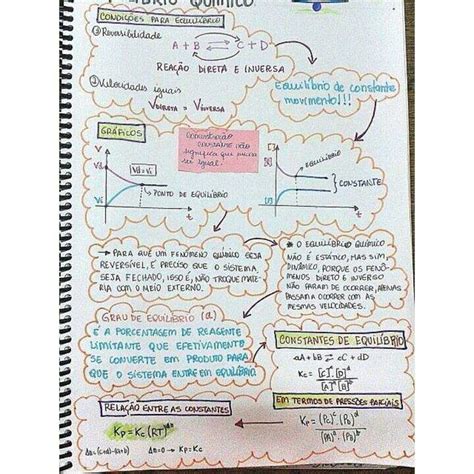 EQUILÍBRIO QUÍMICO
CONDIÇÕES PARA EQUILÍBRIO
① Reversibilidade
A + B ⇄ C + D
REAÇÃO DIRETA E INVERSA
② Velocidades iguais
VDIRETA = VINVERSA
Equilíbrio de constante
movimento!!!
GRÁFICOS
Concentração
constante não
significa que precisa
ser igual.
V
Vd
Vd = Vi
PONTO DE EQUILÍBRIO
Vi
t
[ ]
EQUILÍBRIO
CONSTANTE
t
→ PARA QUE UM FENÔMENO QUÍMICO SEJA
REVERSÍVEL, É PRECISO QUE O SISTEMA
SEJA FECHADO, ISSO É, NÃO TROQUE MATÉ-
RIA COM O MEIO EXTERNO.
* O EQUILÍBRIO QUÍMICO
NÃO É ESTÁTICO, MAS SIM,
DINÂMICO, PORQUE OS FENÔ-
MENOS DIRETO E INVERSO
NÃO PARAM DE OCORRER, APENAS
PASSAM A OCORRER COM AS
MESMAS VELOCIDADES.
GRAU DE EQUILÍBRIO (α)
É A PORCENTAGEM DE REAGENTE
LIMITANTE QUE EFETIVAMENTE
SE CONVERTE EM PRODUTO PARA
QUE O SISTEMA ENTRE EM EQUILÍBRIO
CONSTANTES DE EQUILÍBRIO
aA + bB ⇄ cC + dD
Kc = [C]ᶜ.[D]ᵈ / [A]ᵃ.[B]ᵇ
EM TERMOS DE PRESSÕES PARCIAIS
Kp = (Pc)ᶜ.(PD)ᵈ / (PA)ᵃ.(PB)ᵇ
RELAÇÃO ENTRE AS CONSTANTES
Kp = Kc (RT)^Δn
Δn = (c+d)-(a+b)
Δn = 0 → Kp = Kc